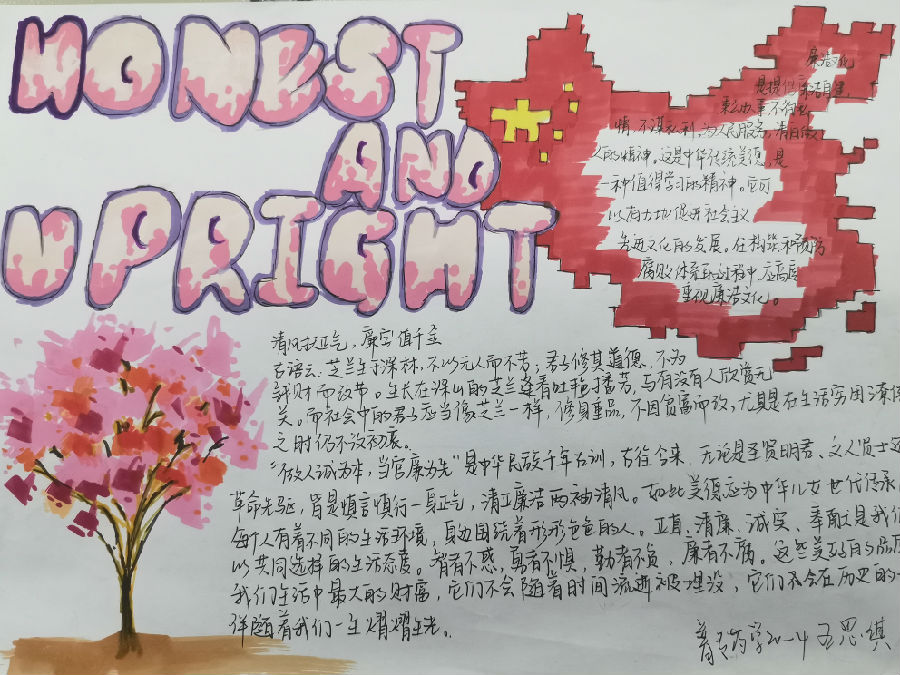 HONEST
AND
UPRIGHT
廉洁文化
是提倡廉洁自建
秉公办事不徇私
情,不谋私利,为人民服务,清白做
人的精神。这是中华传统美德,是
一种值得学习的精神。它可
以有力地促进社会主义
先进文化的发展。在构筑和预防
腐败体系的过程中,应高度
重视廉洁文化。
清风扶正气,廉字值千金
古语云:芝兰生于深林,不以无人而不芳;君子修其道德,不为
穷财而改节。生长在深山的芝兰逢春吐艳播芳,与有没有人欣赏无
关。而社会中的君子应当像芝兰一样,修身重品,不因贫富而改,尤其是在生活穷困
之时仍不改初衷。
“做人诚为本,当官廉为先”是中华民族千年古训,古往今来,无论是圣贤明君、文人贤士还
革命先驱,皆是慎言慎行一身正气,清正廉洁两袖清风。如此美德应为中华儿女世代传承
每个人有着不同的生活环境,身边围绕着形形色色的人。正直、清廉、诚实、奉献是我们
以共同选择的生活态度。智者不惑,勇者不惧,勤者不贫,廉者不腐。这些美好的品质
我们生活中最大的财富,它们不会随着时间流逝被埋没,它们不会在历史的
伴随着我们一生熠熠生光。
药学20-4 王思琪